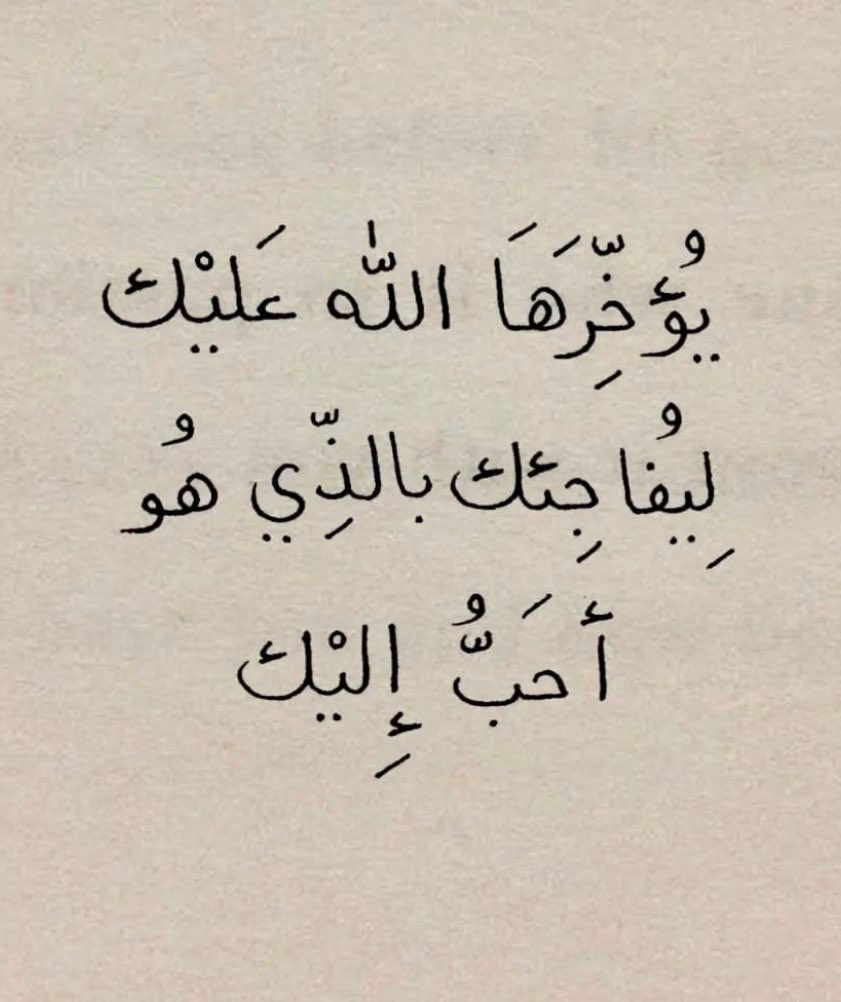 يُؤخِّرَهَا اللّٰه عَليْك
لِيُفاجِئك بالذِّي هُو
أحَبُّ إِليْك